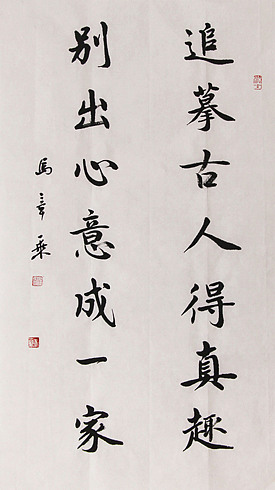 追摹古人得真趣
别出心意成一家
馬章乘